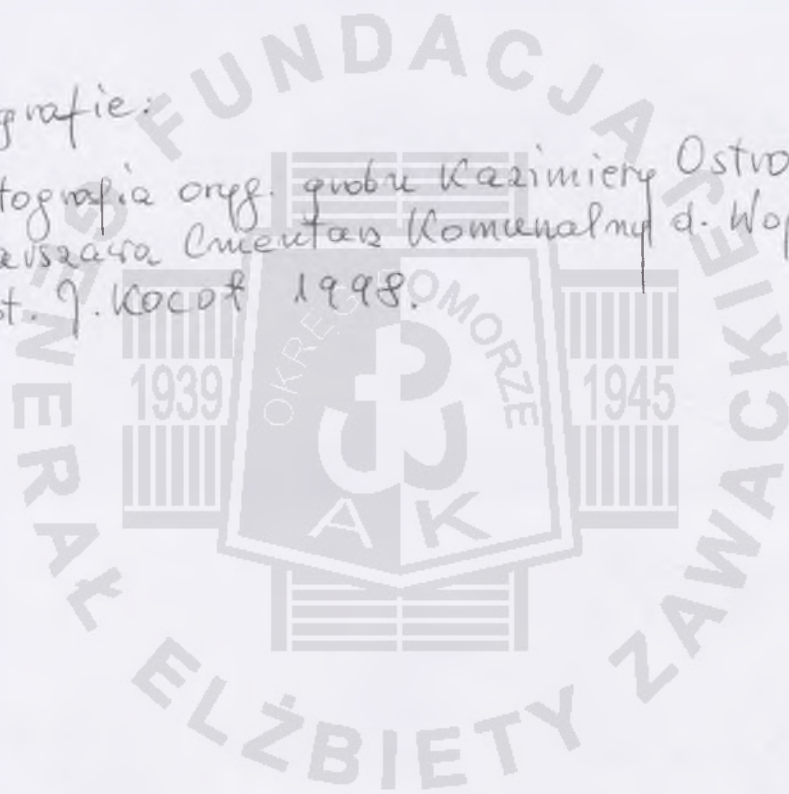 grafie:
tografia oryg. grobu Kazimiery Ostro
arszawa Cmentarz Komunalny d. Woj
t. J. Kocot 1998.
FUNDACJA
GENERAŁ ELŻBIETY ZAWACKIEJ
OKRĘG POMORZE
1939
1945
A K